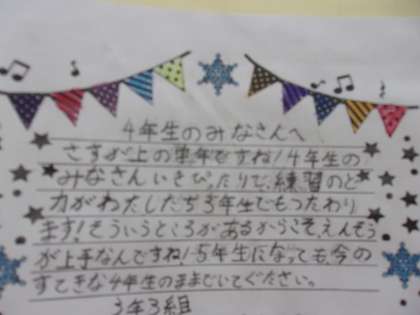 4年生のみなさんへ
さすが上の学年ですね!4年生の
みなさんいきぴったりで、練習のど
力がわたしたち3年生でもつたわり
ます!そういうところがあるからこそ、えんそう
が上手なんですね!5年生になっても、今の
すてきな4年生のままでいてください。
3年3組